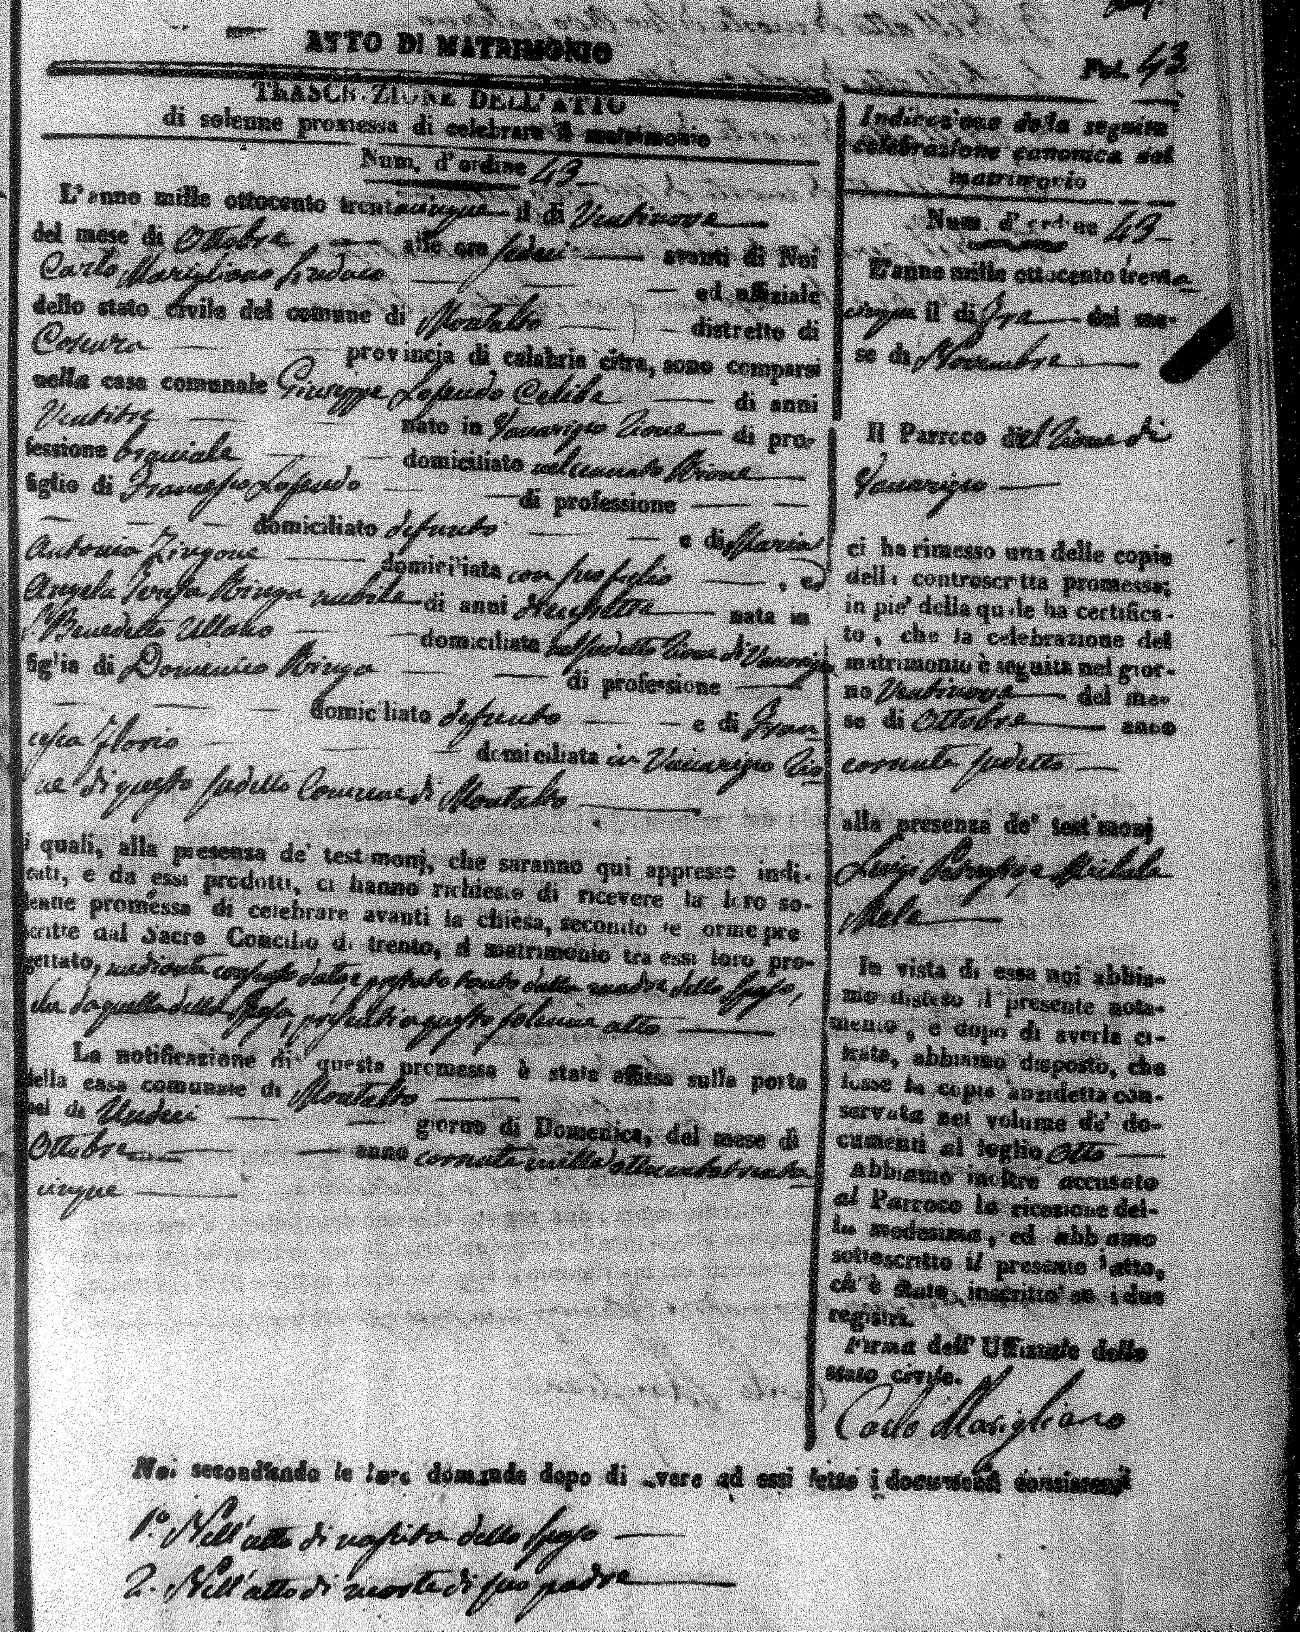 ATTO DI MATRIMONIO
Fol. 43
TRASCRIZIONE DELL' ATTO
di solenne promessa di celebrare il matrimonio
Num. d'ordine 43
L'anno mille ottocento trentacinque il dì Ventinove
del mese di Ottobre alle ore sedeci avanti di Noi
Carlo Marigliano Sindaco ed uffiziale
dello stato civile del comune di Montalto distretto di
Cosenza provincia di calabria citra, sono comparsi
nella casa comunale Giuseppe Celibe di anni
Ventitre nato in Vaccarizzo di pro-
fessione domiciliato
figlio di Francesco di professione
domiciliato defunto e di Maria
Antonia domiciliata con suo figlio, ed
Angela Teresa nubile di anni nata in
S. Benedetto Ullano domiciliata nel sudetto di Vaccarizzo
figlia di Domenico di professione
domiciliato defunto e di Fran
cesca Florio domiciliata in Vaccarizzo Rio
ne di questo sudetto Comune di Montalto
i quali, alla presenza de' testimonj, che saranno qui appresso indi-
cati, e da essi prodotti, ci hanno richiesto di ricevere la loro so-
lenne promessa di celebrare avanti la chiesa, secondo le forme pre
scritte dal Sacro Concilio di trento, il matrimonio tra essi loro pro-
gettato, mediante consenso dato e prestato tanto dalla madre dello Sposo,
che da quella della Sposa, presenti a questo solenne atto
La notificazione di questa promessa è stata affissa sulla porta
della casa comunale di Montalto
nel dì Undeci giorno di Domenica, del mese di
Ottobre anno corrente mille ottocento trenta
cinque
Indicazione della seguita
celebrazione canonica del
matrimonio
Num. d'ordine 43
L'anno mille ottocento trenta
cinque il dì tre del me-
se di Novembre
Il Parroco del Rione di
Vaccarizzo
ci ha rimesso una delle copie
della controscritta promessa;
in pie' della quale ha certifica-
to, che la celebrazione del
matrimonio è seguita nel gior-
no Ventinove del me-
se di Ottobre anno
corrente sudetto
alla presenza de' testimonj
Luigi e Michele
Mele
In vista di essa noi abbia-
mo disteso il presente nota-
mento, e dopo di averla ci-
frata, abbiamo disposto, che
fosse la copia anzidetta con-
servata nel volume de' do-
cumenti al foglio Otto
Abbiamo inoltre accusato
al Parroco la ricezione del-
la medesima, ed abbiamo
sottoscritto il presente atto,
ch'è stato inscritto su i due
registri.
Firma dell' Uffiziale dello
stato civile.
Carlo Marigliano
Noi secondando le loro domande dopo di avere ad essi letto i documenti consistenti
1.° Nell'atto di nascita dello sposo
2. Nell'atto di morte di suo padre